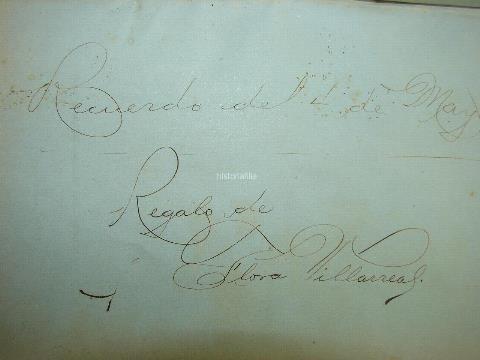 Recuerdo del 4 de May
historiafilia
Regalo de
Flora Villarreal.